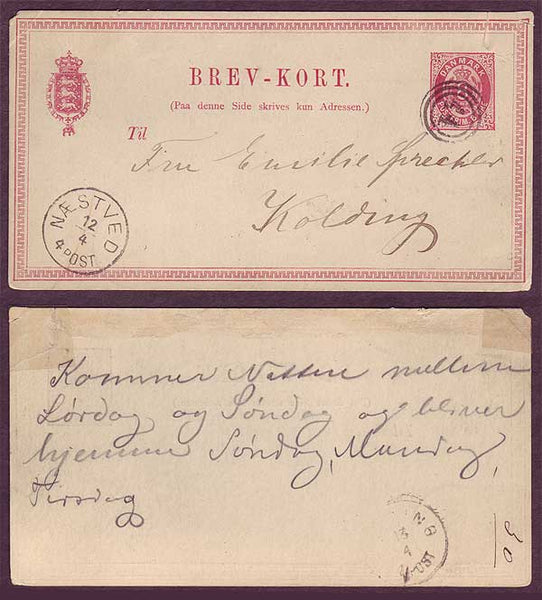 BREV-KORT.
(Paa denne Side skrives kun Adressen.)
DANMARK
Til
Fru Emilie Sprechler
Kolding
NÆSTVED
12
4
4 POST
Kommer Natten mellem
Lørdag og Søndag og bliver
hjemme Søndag, Mandag,
Tirsdag
13
4
POST